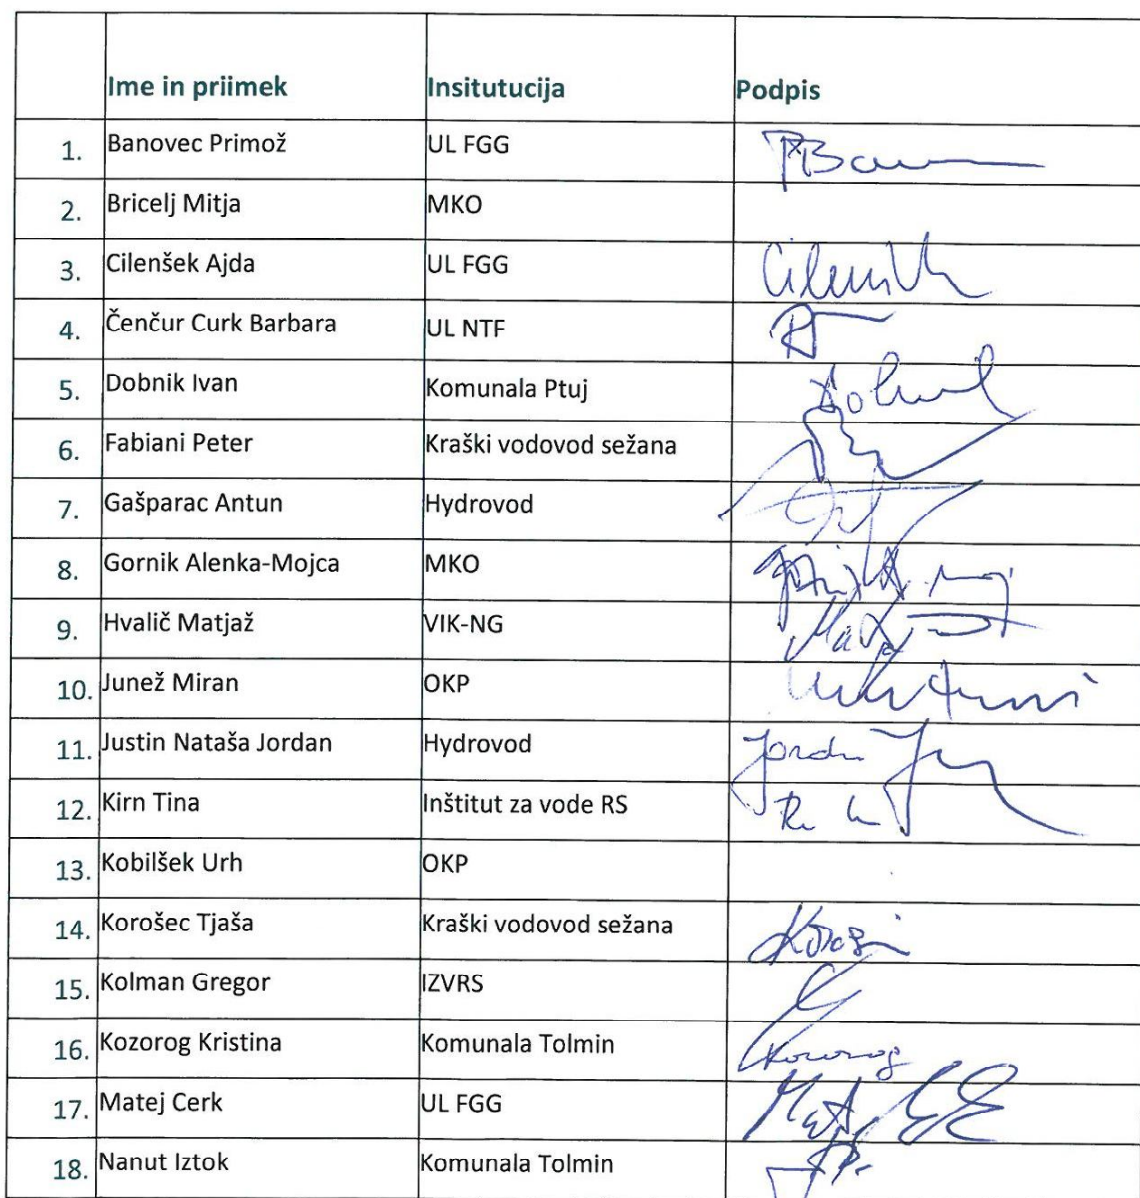 Ime in priimek Insitutucija Podpis
1. Banovec Primož UL FGG
2. Bricelj Mitja MKO
3. Cilenšek Ajda UL FGG
4. Čenčur Curk Barbara UL NTF
5. Dobnik Ivan Komunala Ptuj
6. Fabiani Peter Kraški vodovod sežana
7. Gašparac Antun Hydrovod
8. Gornik Alenka-Mojca MKO
9. Hvalič Matjaž VIK-NG
10. Junež Miran OKP
11. Justin Nataša Jordan Hydrovod
12. Kirn Tina Inštitut za vode RS
13. Kobilšek Urh OKP
14. Korošec Tjaša Kraški vodovod sežana
15. Kolman Gregor IZVRS
16. Kozorog Kristina Komunala Tolmin Kozorog
17. Matej Cerk UL FGG
18. Nanut Iztok Komunala Tolmin